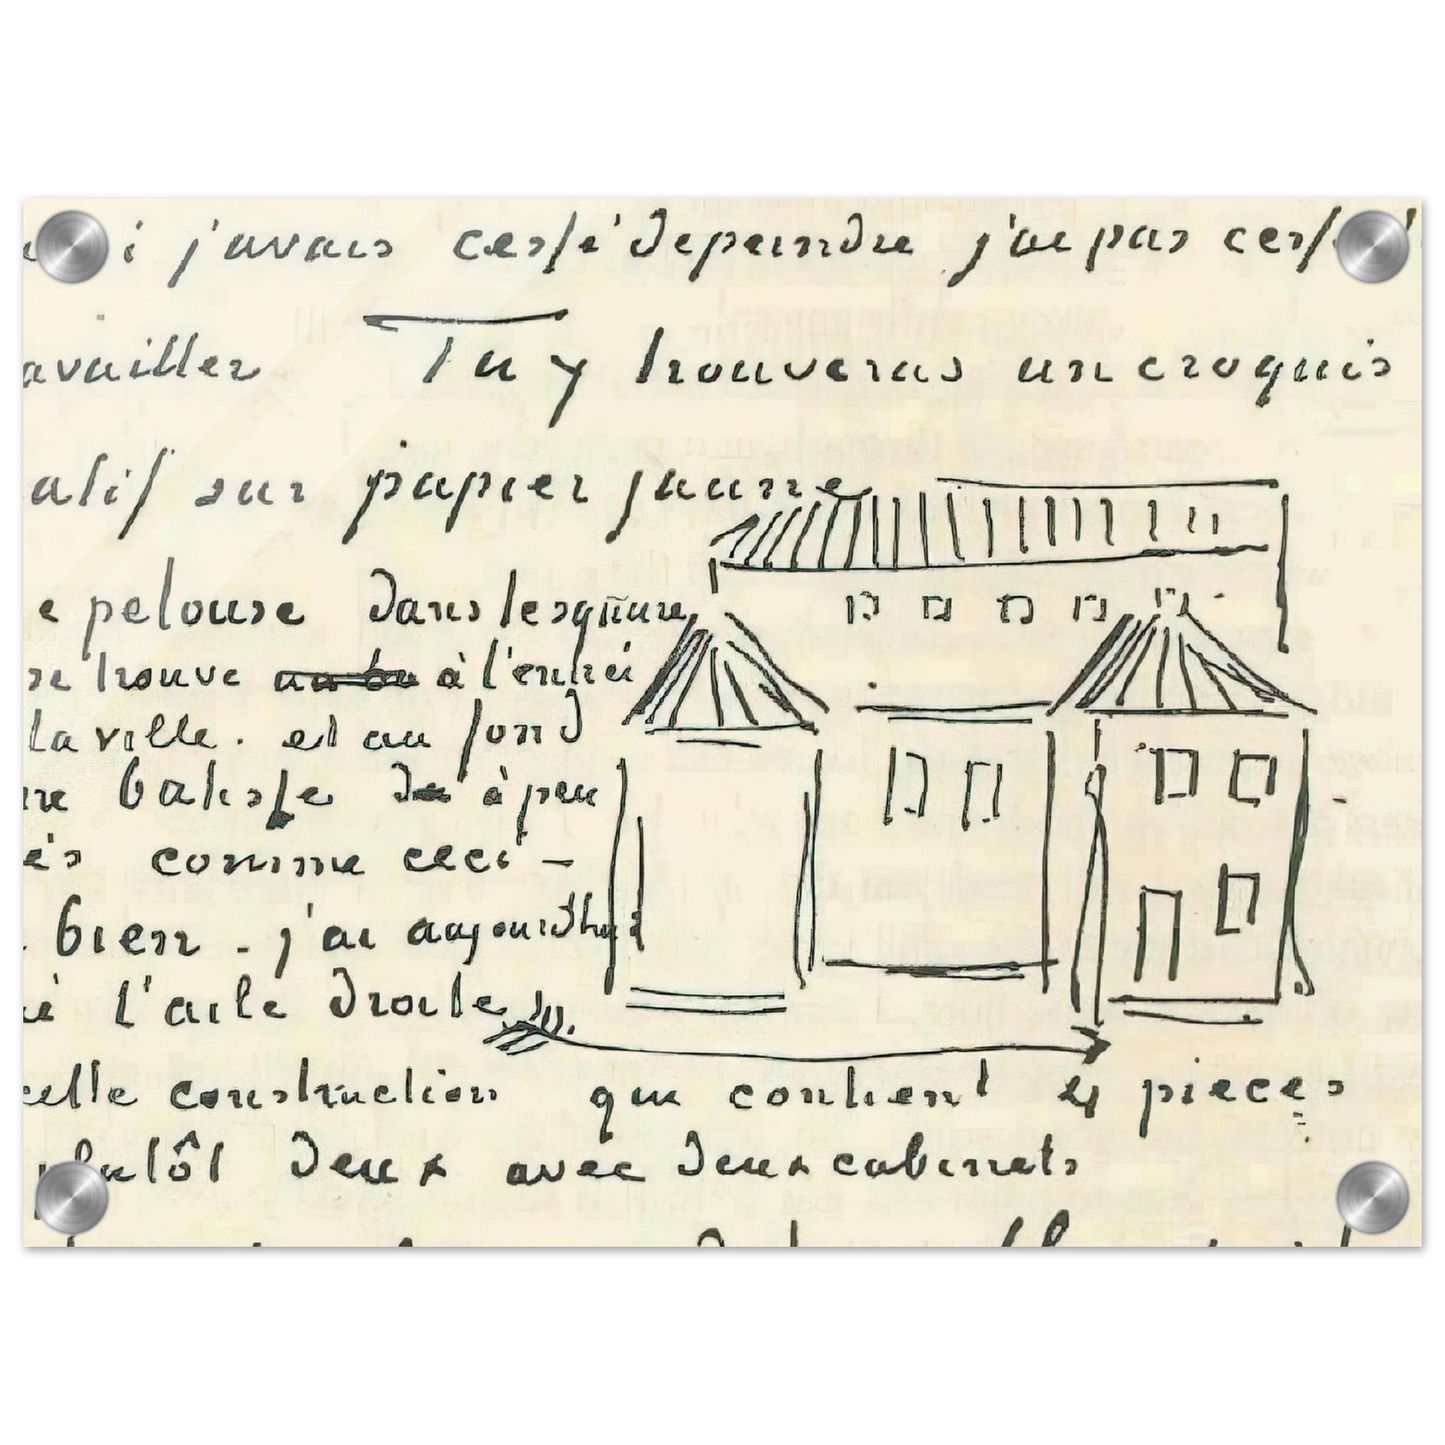 i j'avais cessé de peindre j'ai pas cessé
availler Tu y trouveras un croquis
atif sur papier jaune
e pelouse dans le square
se trouve à l'entrée
la ville. et au fond
ne batisse de à peu
ès comme ceci -
bien - j'ai aujourdhui
é l'aile droite
cette construction qui contient 4 pieces
plutôt deux avec deux cabinets